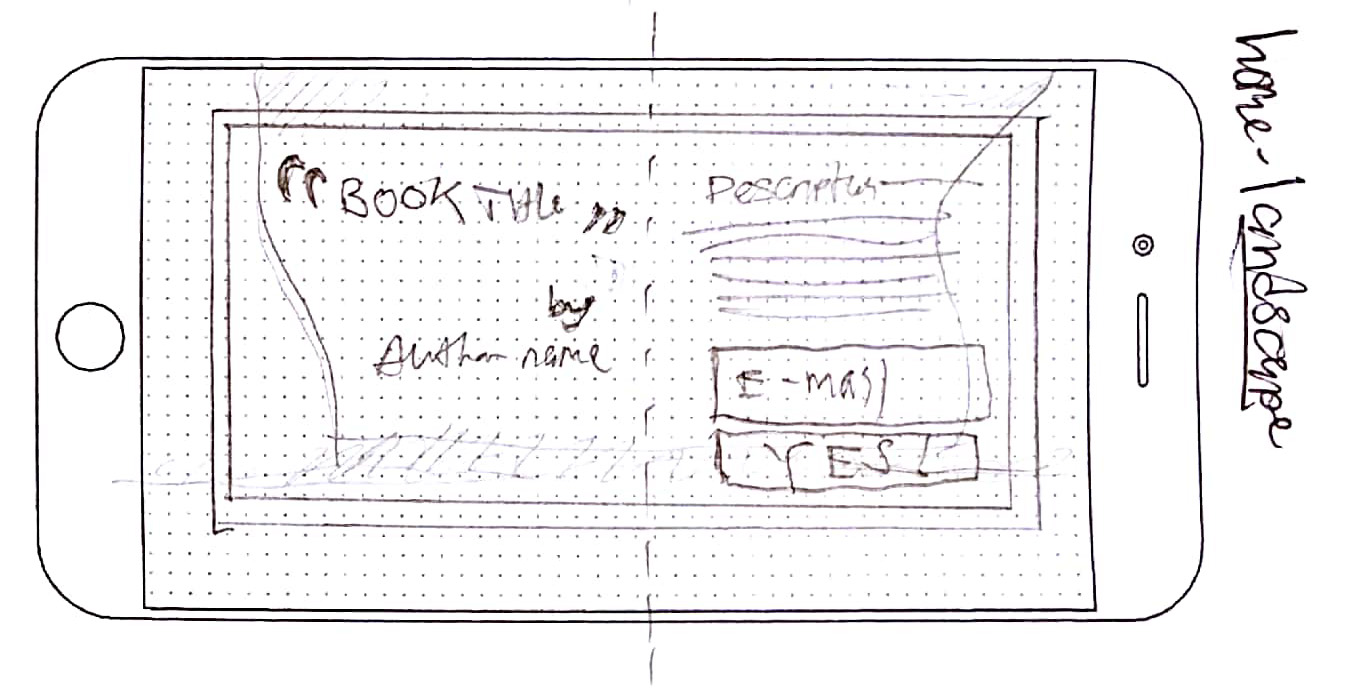 home-landscape
“BOOK Title”
by
Author name
Description
E-mail
YES!